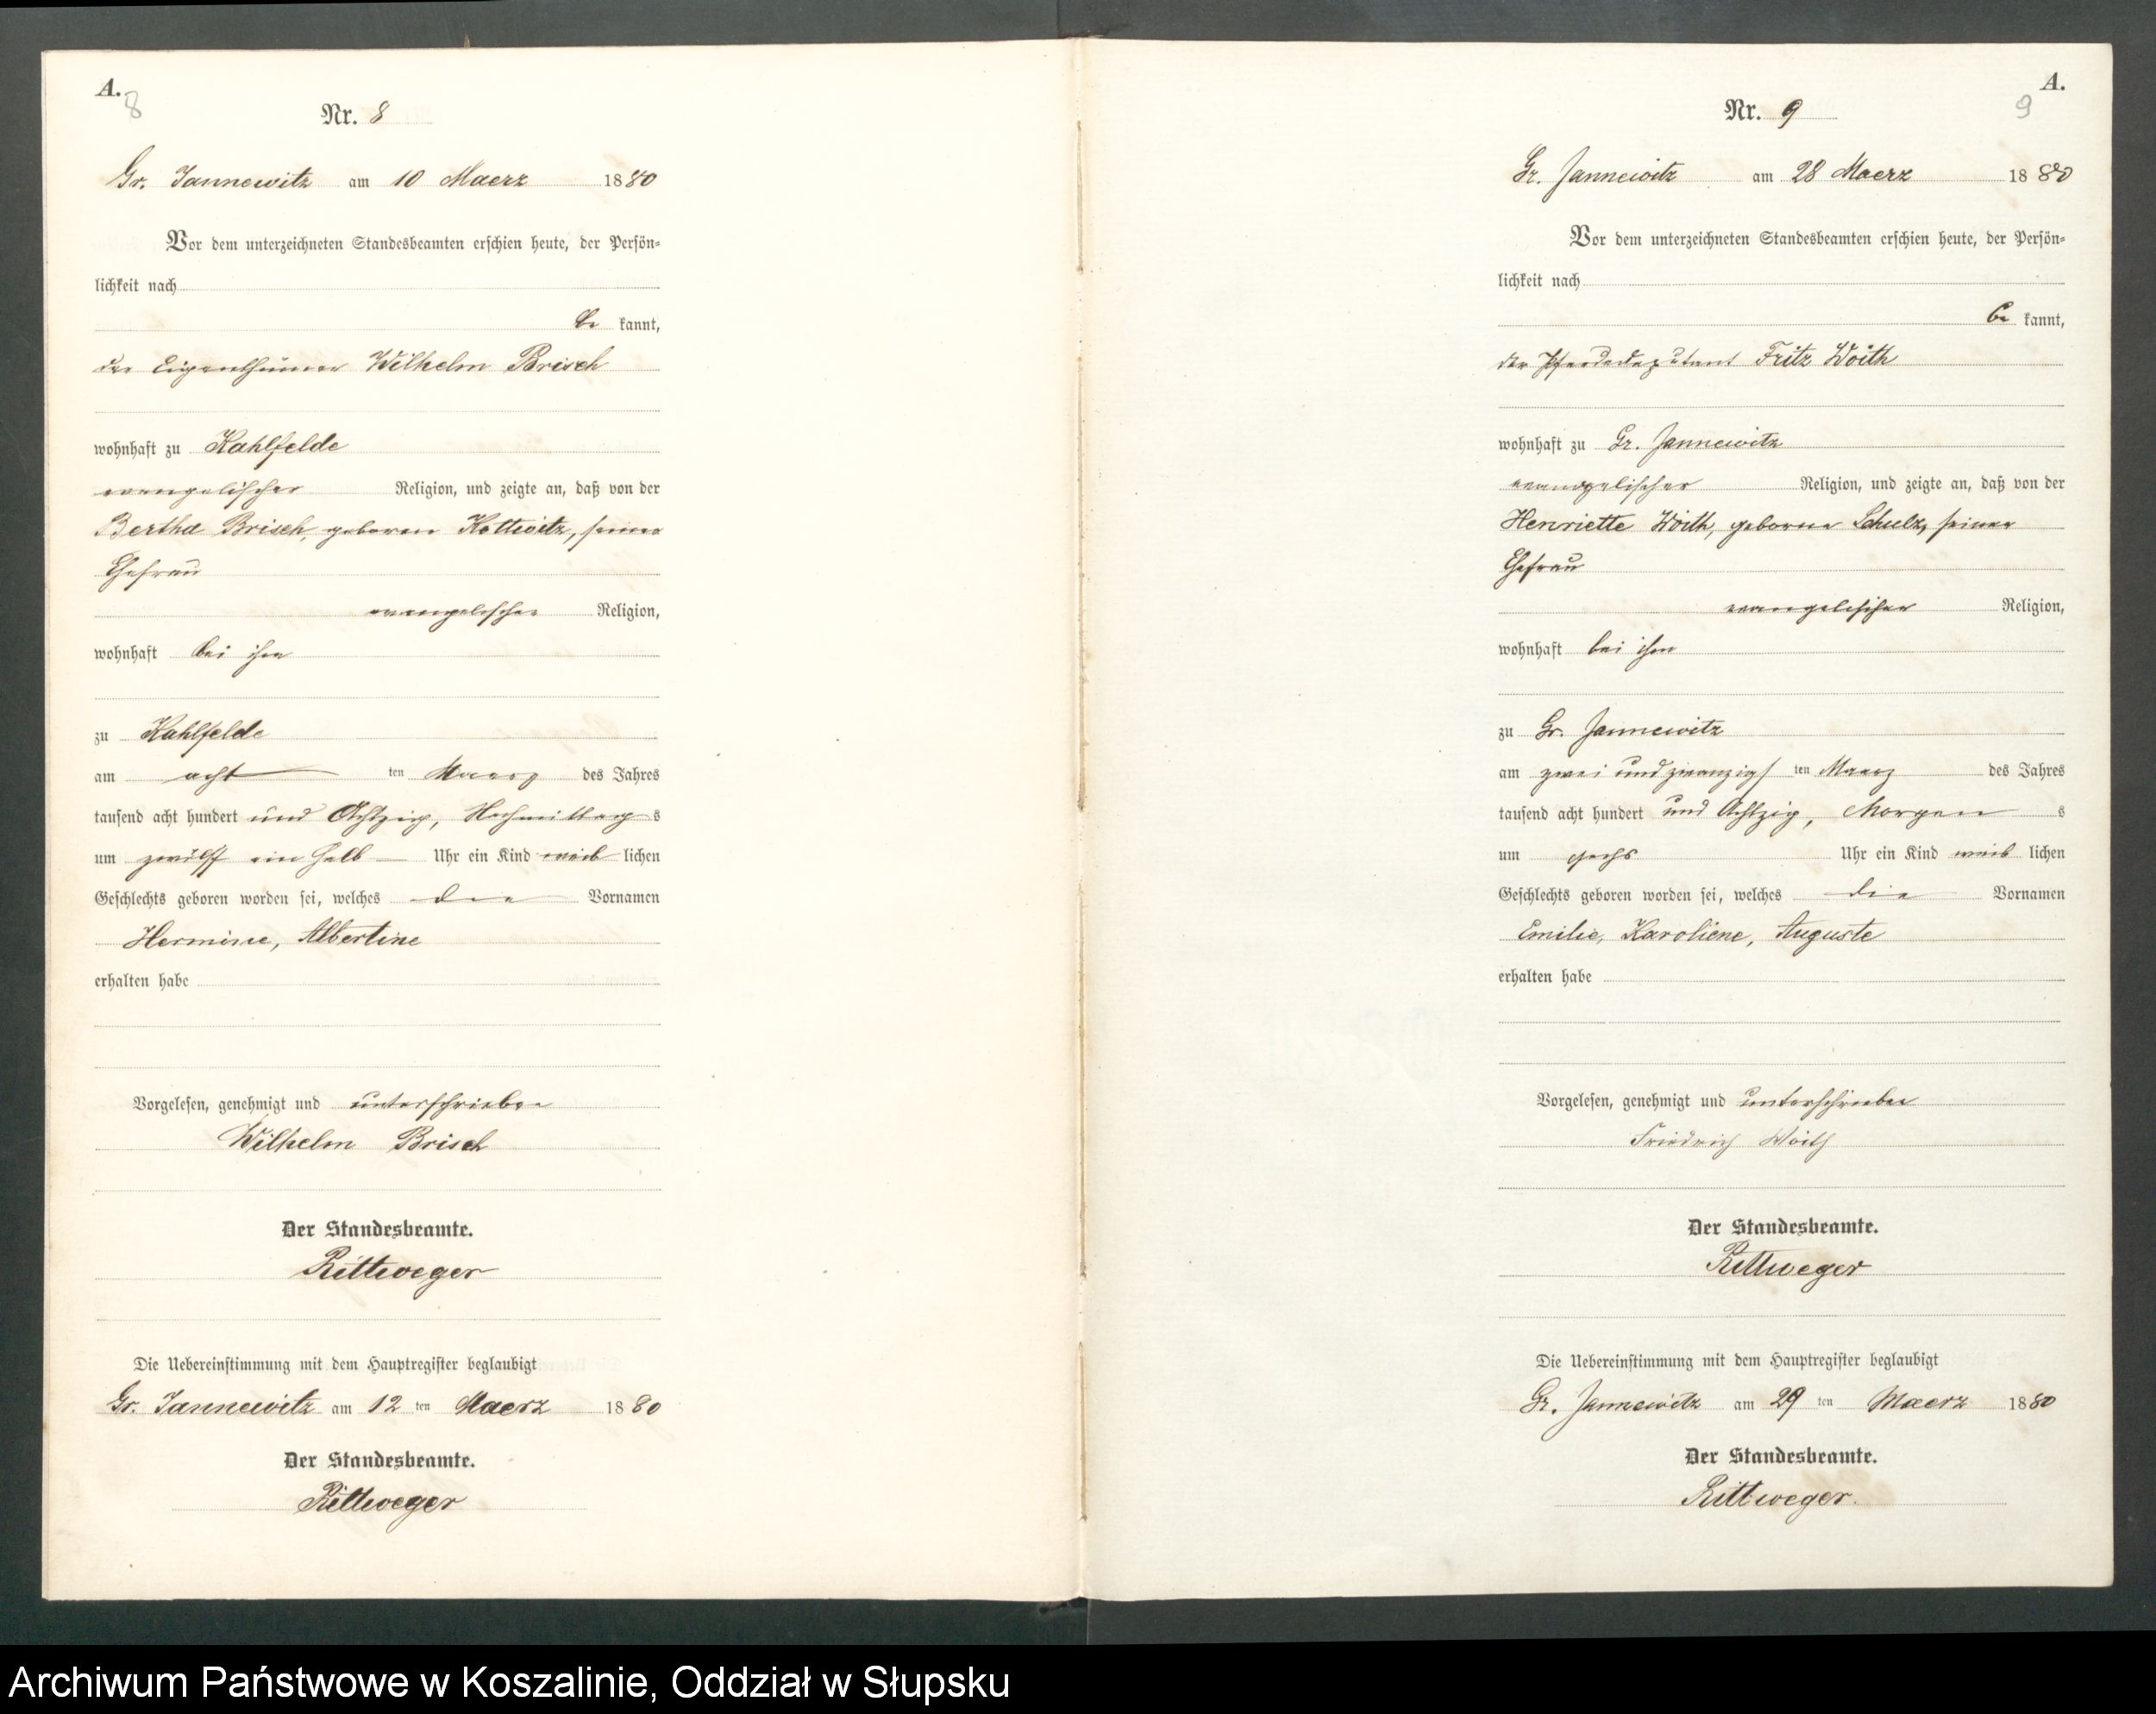 A.
8
Nr. 8
Gr. Jannewitz am 10 Maerz 1880
Vor dem unterzeichneten Standesbeamten erschien heute, der Persön-
lichkeit nach
be kannt,
der Eigenthümer Wilhelm Brisch
wohnhaft zu Kahlfelde
evangelischer Religion, und zeigte an, daß von der
Bertha Brisch, geboren Kottwitz, seiner
Ehefrau
evangelischer Religion,
wohnhaft bei ihm
zu Kahlfelde
am acht ten Maerz des Jahres
tausend acht hundert und Achtzig, Nachmittag s
um zwölf ein halb Uhr ein Kind weib lichen
Geschlechts geboren worden sei, welches die Vornamen
Hermine, Albertine
erhalten habe
Vorgelesen, genehmigt und unterschrieben
Wilhelm Brisch
Der Standesbeamte.
Rittweger
Die Uebereinstimmung mit dem Hauptregister beglaubigt
Gr. Jannewitz am 12 ten Maerz 1880
Der Standesbeamte.
Rittweger
A.
9
Nr. 9
Gr. Jannewitz am 28 Maerz 1880
Vor dem unterzeichneten Standesbeamten erschien heute, der Persön-
lichkeit nach
be kannt,
der Pferdedeputant Fritz Woith
wohnhaft zu Gr. Jannewitz
evangelischer Religion, und zeigte an, daß von der
Henriette Woith, geborne Schulz, seiner
Ehefrau
evangelischer Religion,
wohnhaft bei ihm
zu Gr. Jannewitz
am zwei und zwanzigs ten Maerz des Jahres
tausend acht hundert und Achtzig, Morgen s
um sechs Uhr ein Kind weib lichen
Geschlechts geboren worden sei, welches die Vornamen
Emilie, Karoliene, Auguste
erhalten habe
Vorgelesen, genehmigt und unterschrieben
Friedrich Woith
Der Standesbeamte.
Rittweger
Die Uebereinstimmung mit dem Hauptregister beglaubigt
Gr. Jannewitz am 29 ten Maerz 1880
Der Standesbeamte.
Rittweger.
Archiwum Państwowe w Koszalinie, Oddział w Słupsku